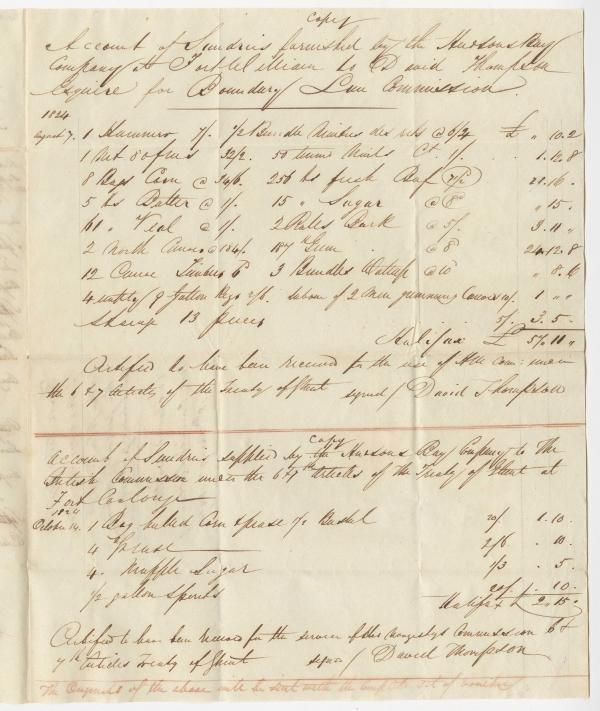 Copy
Account of Sundries furnished by the Hudsons Bay
Company at Fort William to David Thompson
Esquire for Boundary Line Commission
1824
August 7. 1 Hammer 7/. 1/2 Bundle @ 6/4 £ " 10. 2
1 Net 32/2. 50 Nails Ct. 1/. 1. 12. 8
8 Bags Corn @ 34/6. 256 lbs fresh Beef 21. 16.
5 lbs Butter @ 1/. 15 " Sugar @ 8d " 15.
61 " Veal @ 1/. 2 Rolls Bark @ 5/. 3. 11 "
2 North Canoes @ Gum @ 8 24. 12. 8
12 Canoe Timbers 6 3 Bundles Wattap @ 10 " 8. 6
4 Kegs 2/6. labour of 2 Men gumming Canoes 10/. 1 " "
13 pieces 5/. 3. 5.
Halifax £ 11 "
Certified to have been received for the use of the Com: under
the 6 & 7 Articles of the Treaty of Ghent signed / David Thompson
Copy
Account of Sundries supplied by the Hudsons Bay Company to The
British Commission under the 6 & 7th articles of the Treaty of Ghent at
Fort Coulonge
1824
October 14. 1 Bag hulled Corn & pease Bushel 20/. 1. 10.
4 2/6 . 10.
4. Sugar 1/3 . 5.
1/2 gallon Spirits 20/. . 10.
Halifax £ 2. 15.
Certified to have been received for the service of His Majestys Commission 6 &
7th Articles Treaty of Ghent signed / David Thompson
The Originals of the above will be sent with the set of